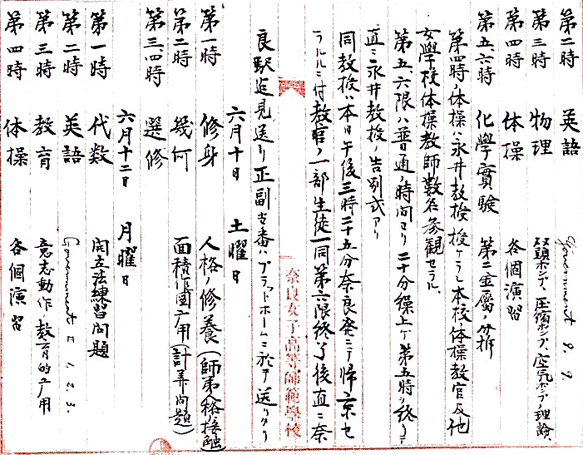 第二時 英語 Government 8. 9.
第三時 物理 双頭ポンプ、圧縮ポンプ、空気ポンプノ理論、
第四時 体操 各個演習
第五、六時 化學實驗 第二金屬ノ分析
第四時ノ体操ハ永井教授授ケラレ本校体操教官及他
女學校体操教師数名参観セラル、
第五、六限ハ普通ノ時間ヨリ二十分繰上ケ第五時ヲ終リテ
直ニ永井教授ノ告別式アリ
同教授ハ本日午後三時二十五分奈良発ニテ帰京セ
ラルルニ付教官ノ一部生徒一同第六限終了後直ニ奈
良駅迄見送リ正副当番ハプラットホームニ於テ送リタリ
六月十日 土曜日
第一時 修身 人格ノ修養(師弟人格接触)
第二時 幾何 面積作圖ノ應用(計算問題)
第三、四時 選修
六月十二日 月曜日
第一時 代数 開立法練習問題
第二時 英語 Government 1. 2. 3.
第三時 教育 意志動作ノ教育的應用
第四時 体操 各個演習
奈良女子高等師範學校